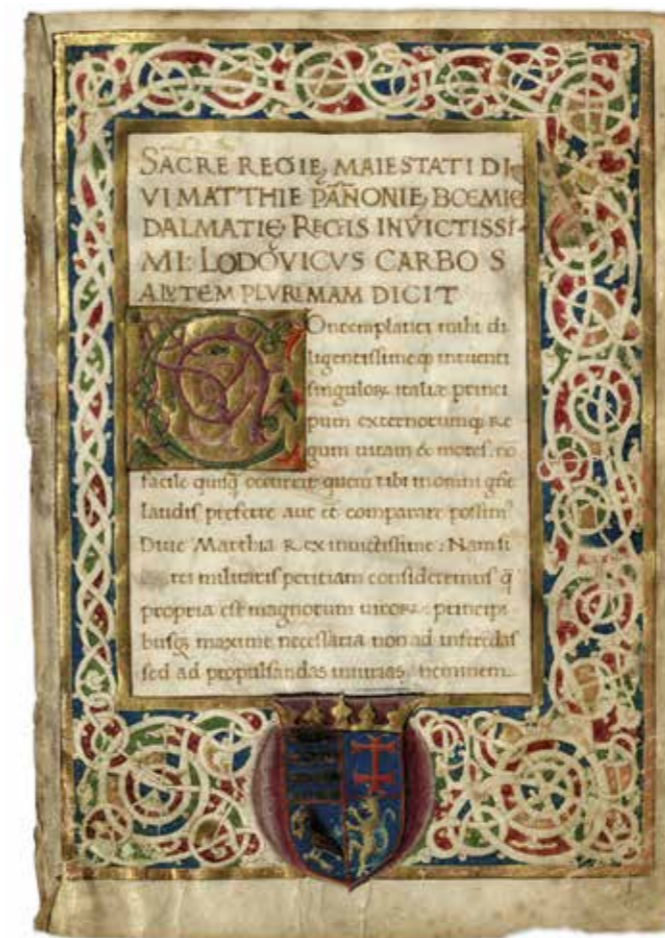 SACRE REGIĘ MAIESTATI DI
VI MATTHIE PAÑONIĘ, BOEMIĘ
DALMATIĘ REGIS INVICTISSI
MI: LODOVICVS CARBO S
ALVTEM PLVRIMAM DICIT
COntemplanti mihi di
ligentissimeq; intuenti
singuloꝝ italiæ princi
pum externorumq; Re
gum uitam & mores: nō
facile quisq̄ occurrit quem tibi in omni gñe
laudis preferre aut et̄ comparare possim
Diue Matthia Rex inuictissime: Nam si
rei militaris peritiam consideremus q̄
propria est magnorum uiroꝝ: principi
busq; maxime necessaria non ad inferēdas
sed ad propulsandas iniurias: neminem